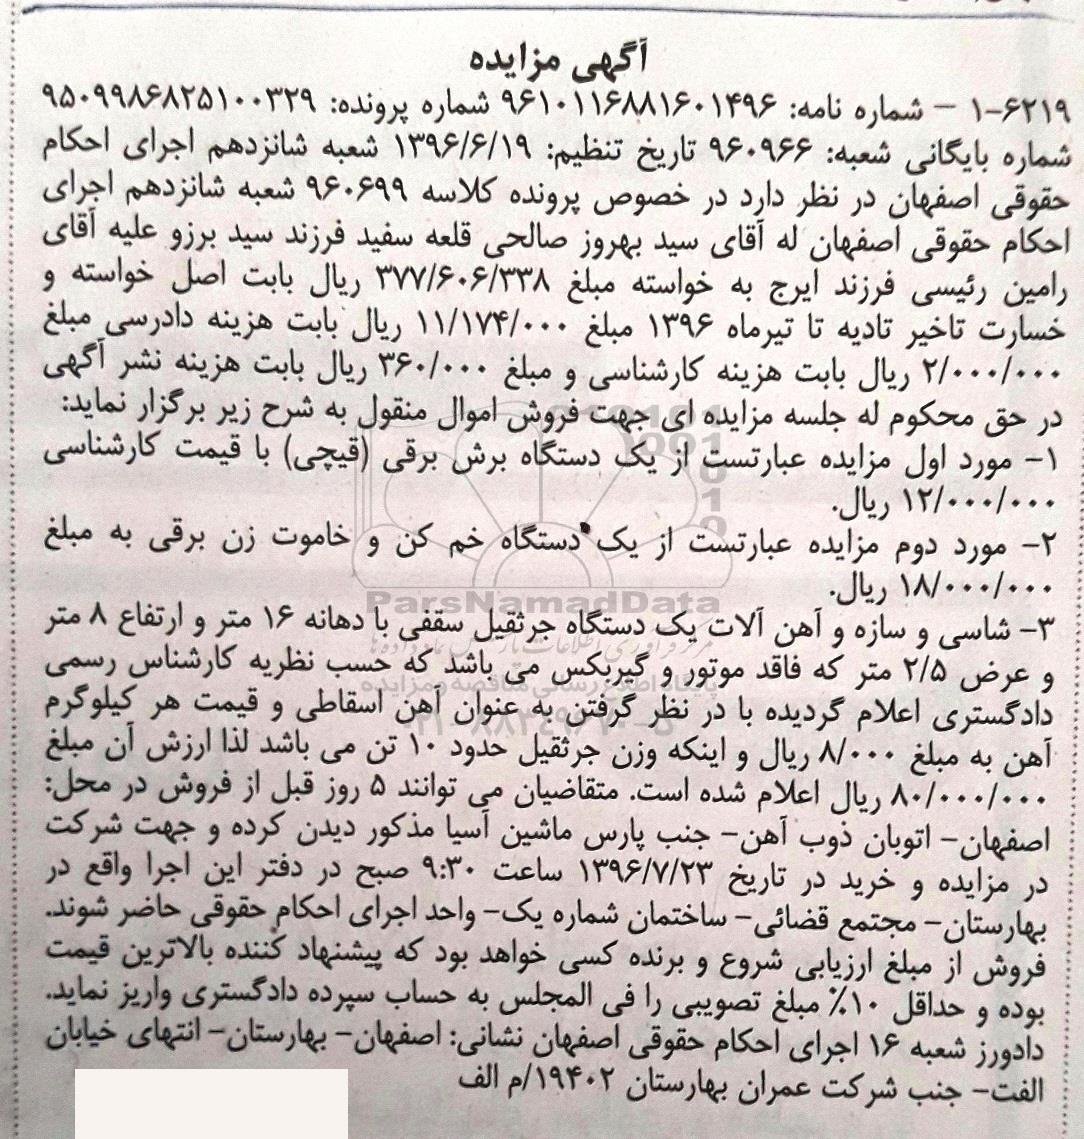 آگهی مزایده
۱-۶۲۱۹ – شماره نامه: ۹۶۱۰۱۱۶۸۸۱۶۰۱۴۹۶ شماره پرونده: ۹۵۰۹۹۸۶۸۲۵۱۰۰۳۲۹
شماره بایگانی شعبه: ۹۶۰۹۶۶ تاریخ تنظیم: ۱۳۹۶/۶/۱۹ شعبه شانزدهم اجرای احکام
حقوقی اصفهان در نظر دارد در خصوص پرونده کلاسه ۹۶۰۶۹۹ شعبه شانزدهم اجرای
احکام حقوقی اصفهان له آقای سید بهروز صالحی قلعه سفید فرزند سید برزو علیه آقای
رامین رئیسی فرزند ایرج به خواسته مبلغ ۳۷۷/۶۰۶/۳۳۸ ریال بابت اصل خواسته و
خسارت تاخیر تادیه تا تیرماه ۱۳۹۶ مبلغ ۱۱/۱۷۴/۰۰۰ ریال بابت هزینه دادرسی مبلغ
۲/۰۰۰/۰۰۰ ریال بابت هزینه کارشناسی و مبلغ ۳۶۰/۰۰۰ ریال بابت هزینه نشر آگهی
در حق محکوم له جلسه مزایده ای جهت فروش اموال منقول به شرح زیر برگزار نماید:
۱- مورد اول مزایده عبارتست از یک دستگاه برش برقی (قیچی) با قیمت کارشناسی
۱۲/۰۰۰/۰۰۰ ریال.
۲- مورد دوم مزایده عبارتست از یک دستگاه خم کن و خاموت زن برقی به مبلغ
۱۸/۰۰۰/۰۰۰ ریال.
ParsNamadData
۳- شاسی و سازه و آهن آلات یک دستگاه جرثقیل سقفی با دهانه ۱۶ متر و ارتفاع ۸ متر
و عرض ۲/۵ متر که فاقد موتور و گیربکس می باشد که حسب نظریه کارشناس رسمی
دادگستری اعلام گردیده با در نظر گرفتن به عنوان آهن اسقاطی و قیمت هر کیلوگرم
آهن به مبلغ ۸/۰۰۰ ریال و اینکه وزن جرثقیل حدود ۱۰ تن می باشد لذا ارزش آن مبلغ
۸۰/۰۰۰/۰۰۰ ریال اعلام شده است. متقاضیان می توانند ۵ روز قبل از فروش در محل:
اصفهان- اتوبان ذوب آهن- جنب پارس ماشین آسیا مذکور دیدن کرده و جهت شرکت
در مزایده و خرید در تاریخ ۱۳۹۶/۷/۲۳ ساعت ۹:۳۰ صبح در دفتر این اجرا واقع در
بهارستان- مجتمع قضائی- ساختمان شماره یک- واحد اجرای احکام حقوقی حاضر شوند.
فروش از مبلغ ارزیابی شروع و برنده کسی خواهد بود که پیشنهاد کننده بالاترین قیمت
بوده و حداقل ۱۰٪ مبلغ تصویبی را فی المجلس به حساب سپرده دادگستری واریز نماید.
دادورز شعبه ۱۶ اجرای احکام حقوقی اصفهان نشانی: اصفهان- بهارستان- انتهای خیابان
الفت- جنب شرکت عمران بهارستان ۱۹۴۰۲/م الف